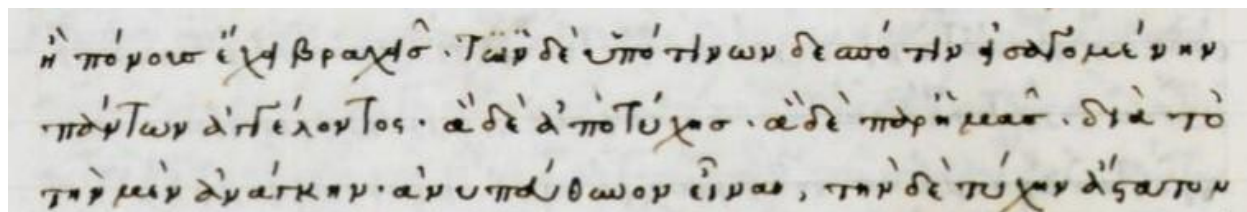 ἢ πόνους ἔχει βραχεῖς· τῶν δὲ ὑπό τινων δεσπότιν εἰσαγομένην
πάντων ἀγγέλοντος· ἃ δὲ ἀπὸ τύχης· ἃ δὲ παρ ἡμᾶς· διὰ τὸ
τὴν μὲν ἀνάγκην· ἀνυπεύθυνον εἶναι, τὴν δὲ τύχην ἄστατον